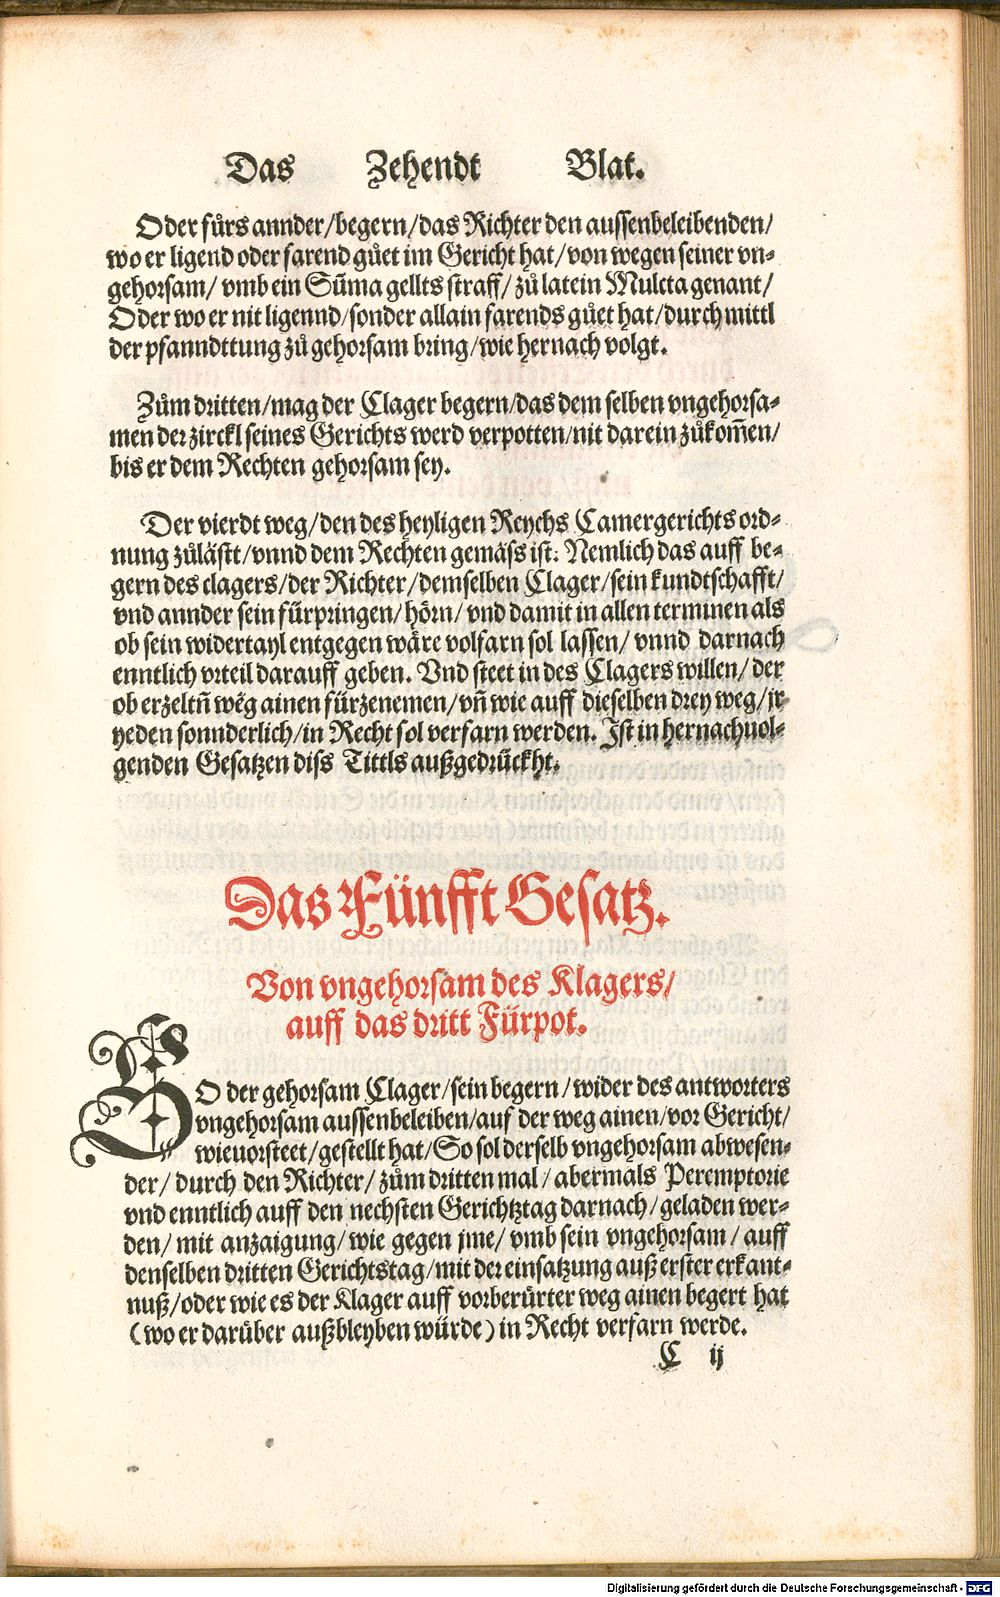 Das Zehendt Blat.
Oder fürs annder/begern/das Richter den aussenbeleibenden/
wo er ligend oder farend gůet im Gericht hat/von wegen seiner vn-
gehorsam/ vmb ein Sūma gellts straff/ zů latein Mulcta genant/
Oder wo er nit ligennd/sonder allain farends gůet hat/durch mittl
der pfanndttung zů gehorsam bring/wie hernach volgt.
Zům dritten/mag der Clager begern/das dem selben vngehorsa-
men der zirckl seines Gerichts werd verpotten/nit darein zůkom̄en/
bis er dem Rechten gehorsam sey.
Der vierdt weg/den des heyligen Reychs Camergerichts ord-
nung zůlåstt/vnnd dem Rechten gemåss ist: Nemlich das auff be-
gern des clagers/der Richter/demselben Clager/sein kundtschafft/
vnd annder sein fürpringen/hörn/vnd damit in allen terminen als
ob sein widertayl entgegen wåre volfarn sol lassen/ vnnd darnach
enntlich vrteil darauff geben. Vnd steet in des Clagers willen/ der
ob erzeltn̄ wēg ainen fürzenemen/vn̄ wie auff dieselben drey weg/ir
yeden sonnderlich/in Recht sol verfarn werden. Ist in hernachuol-
genden Gesatzen diss Tittls außgedrückht.
Das Fünfft Gesatz.
Von vngehorsam des Klagers/
auff das dritt Fürpot.
SO der gehorsam Clager/sein begern/wider des antworters
vngehorsam aussenbeleiben/auf der weg ainen/vor Gericht/
wieuorsteet/gestellt hat/So sol derselb vngehorsam abwesen-
der/ durch den Richter/ zům dritten mal/ abermals Peremptorie
vnd enntlich auff den nechsten Gerichtztag darnach/ geladen wer-
den/ mit anzaigung/ wie gegen jme/ vmb sein vngehorsam/ auff
denselben dritten Gerichtstag/mit der einsatzung auß erster erkant-
nuß/oder wie es der Klager auff vorberürter weg ainen begert hat
(wo er darüber außbleyben würde) in Recht verfarn werde.
C ij
Digitalisierung gefördert durch die Deutsche Forschungsgemeinschaft - DFG